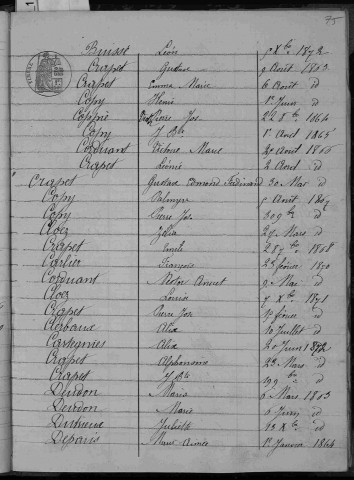 75
Buisse Léon 5 Xbre 1872
Crapet Gustave 9 Août 1863
Crapet Emma Marie 6 Août d
Copy Henri 1r Juin d
Coppin Pierre Jos. 22 8bre 1864
Copy J Bte 1r Avril 1865
Corduant Victoire Marie 20 Août 1866
Crapet Léonie 2 Avril d
Crapet Gustave Edmond Ferdinand 30 Mai d
Copy Palmyre 5 Août 1867
Copy Pierre Jos 30 9bre d
Cloez Zélie 27 Mars d
Crapet Emile 28 1868
Carlier François 25 février 1870
Corduant Victor 9 Mai d
Cloez Louise 5 Xbre 1871
Crapet Pierre Jos février d
Alix 10 Juillet d
Alix 20 Juin 1872
Crapet Alphonsine 22 Mars d
Crapet J Bte 19 9bre d
Deudon Marie 6 Mars 1863
Deudon Marie 6 Juin d
Juliette 13 Xbre d
Depáris Marie Aimée 1r Janvier 1864